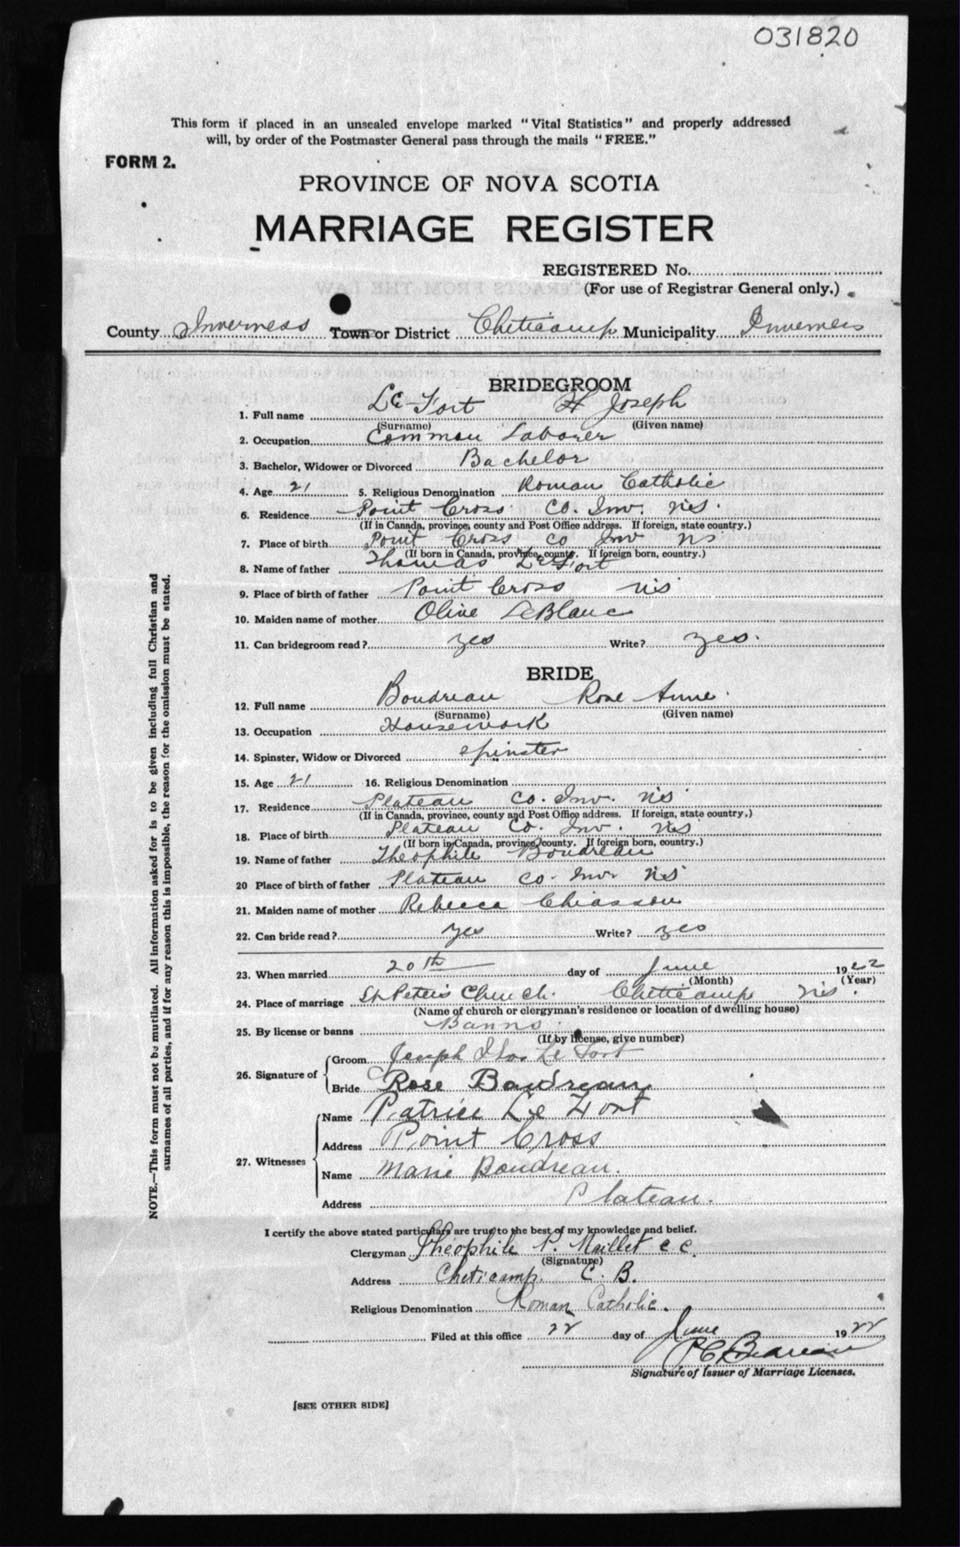 031820
This form if placed in an unsealed envelope marked "Vital Statistics" and properly addressed
will, by order of the Postmaster General pass through the mails "FREE."
FORM 2.
PROVINCE OF NOVA SCOTIA
MARRIAGE REGISTER
REGISTERED No.
(For use of Registrar General only.)
County Inverness Town or District Cheticamp Municipality Inverness
BRIDEGROOM
1. Full name Le Fort H Joseph
(Surname) (Given name)
2. Occupation Common Laborer
3. Bachelor, Widower or Divorced Bachelor
4. Age 21 5. Religious Denomination Roman Catholic
6. Residence Point Cross Co. Inv. N.S.
(If in Canada, province, county and Post Office address. If foreign, state country.)
7. Place of birth Point Cross Co Inv NS
(If born in Canada, province, county. If foreign born, country.)
8. Name of father Thomas Le Fort
9. Place of birth of father Point Cross NS
10. Maiden name of mother Olive LeBlanc
11. Can bridegroom read? yes Write? yes.
BRIDE
12. Full name Boudreau Rose Anne.
(Surname) (Given name)
13. Occupation Housework
14. Spinster, Widow or Divorced spinster
15. Age 21 16. Religious Denomination
17. Residence Plateau Co. Inv. NS
(If in Canada, province, county and Post Office address. If foreign, state country.)
18. Place of birth Plateau Co. Inv. NS
(If born in Canada, province, county. If foreign born, country.)
19. Name of father Theophile Boudreau
20 Place of birth of father Plateau Co. Inv. NS
21. Maiden name of mother Rebecca Chiasson
22. Can bride read? yes Write? yes
23. When married 20th day of June 1922
(Month) (Year)
24. Place of marriage St Peters Church. Cheticamp N.S.
(Name of church or clergyman's residence or location of dwelling house)
25. By license or banns Banns.
(If by license, give number)
26. Signature of Groom Joseph Le Fort
Bride Rose Boudreau
27. Witnesses Name Patrice Le Fort
Address Point Cross
Name Marie Boudreau.
Address Plateau.
I certify the above stated particulars are true to the best of my knowledge and belief.
Clergyman Théophile P. Maillet c.c.
(Signature)
Address Cheticamp. C. B.
Religious Denomination Roman Catholic.
Filed at this office 22 day of June 1922
P C Boudreau
Signature of Issuer of Marriage Licenses.
[SEE OTHER SIDE]
NOTE.—This form must not be mutilated. All information asked for is to be given including full Christian and
surnames of all parties, and if for any reason this is impossible, the reason for the omission must be stated.